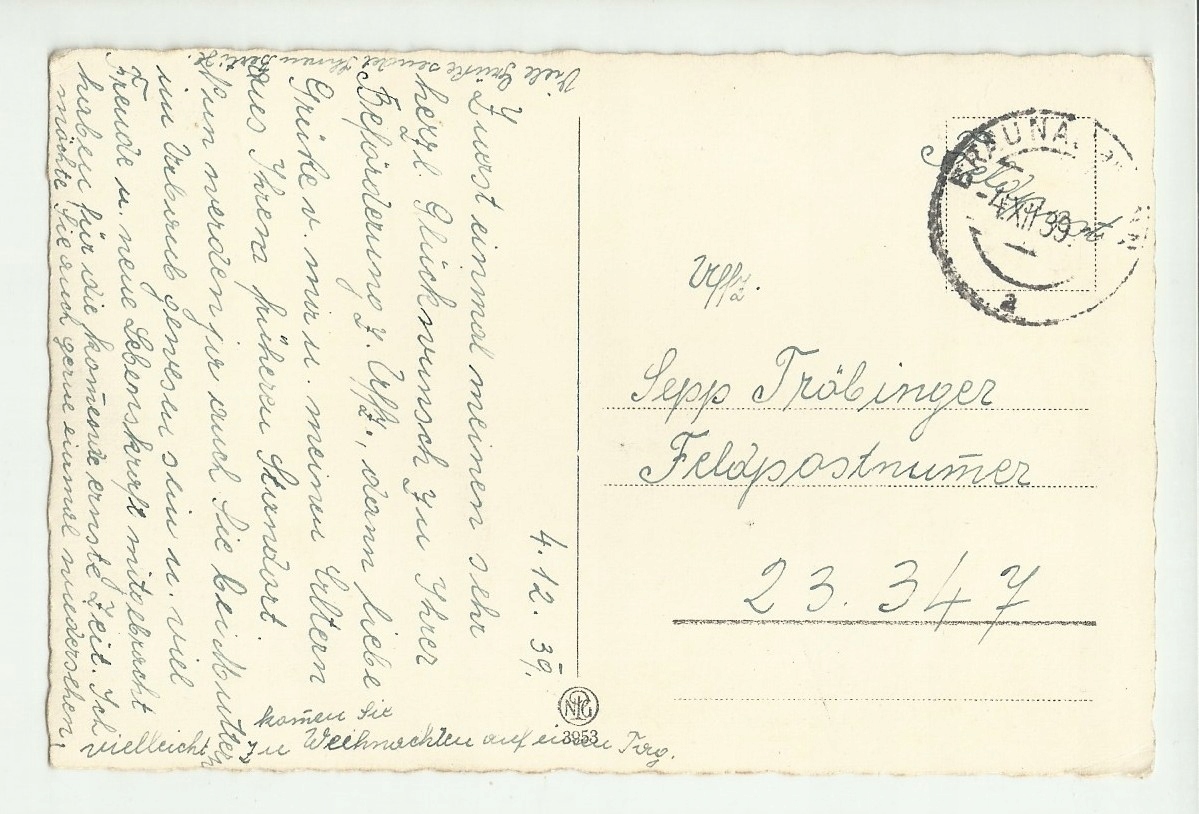 4.12.39.
Zuerst einmal meinen sehr
herzl. Glückwunsch zu Ihrer
Beförderung z. Uffz., dann liebe
Grüße v. mir u. meinen Eltern
aus Ihrem früheren Standort.
Nun werden ja auch Sie bei Mutter
im Urlaub gewesen sein u. viel
Freude u. neue Lebenskraft mitgebracht
haben für die kom̄ende ernste Zeit. Ich
möchte Sie auch gerne einmal wiedersehen,
vielleicht kom̄en Sie
zu Weihnachten auf einen Tag.
Viele Grüße sendet Ihnen
Feldpost
BRAUNAU
-4.XII.39.
a
Uffz.
Sepp Tröbinger
Feldpostnum̄er
23.347
NPG
3953